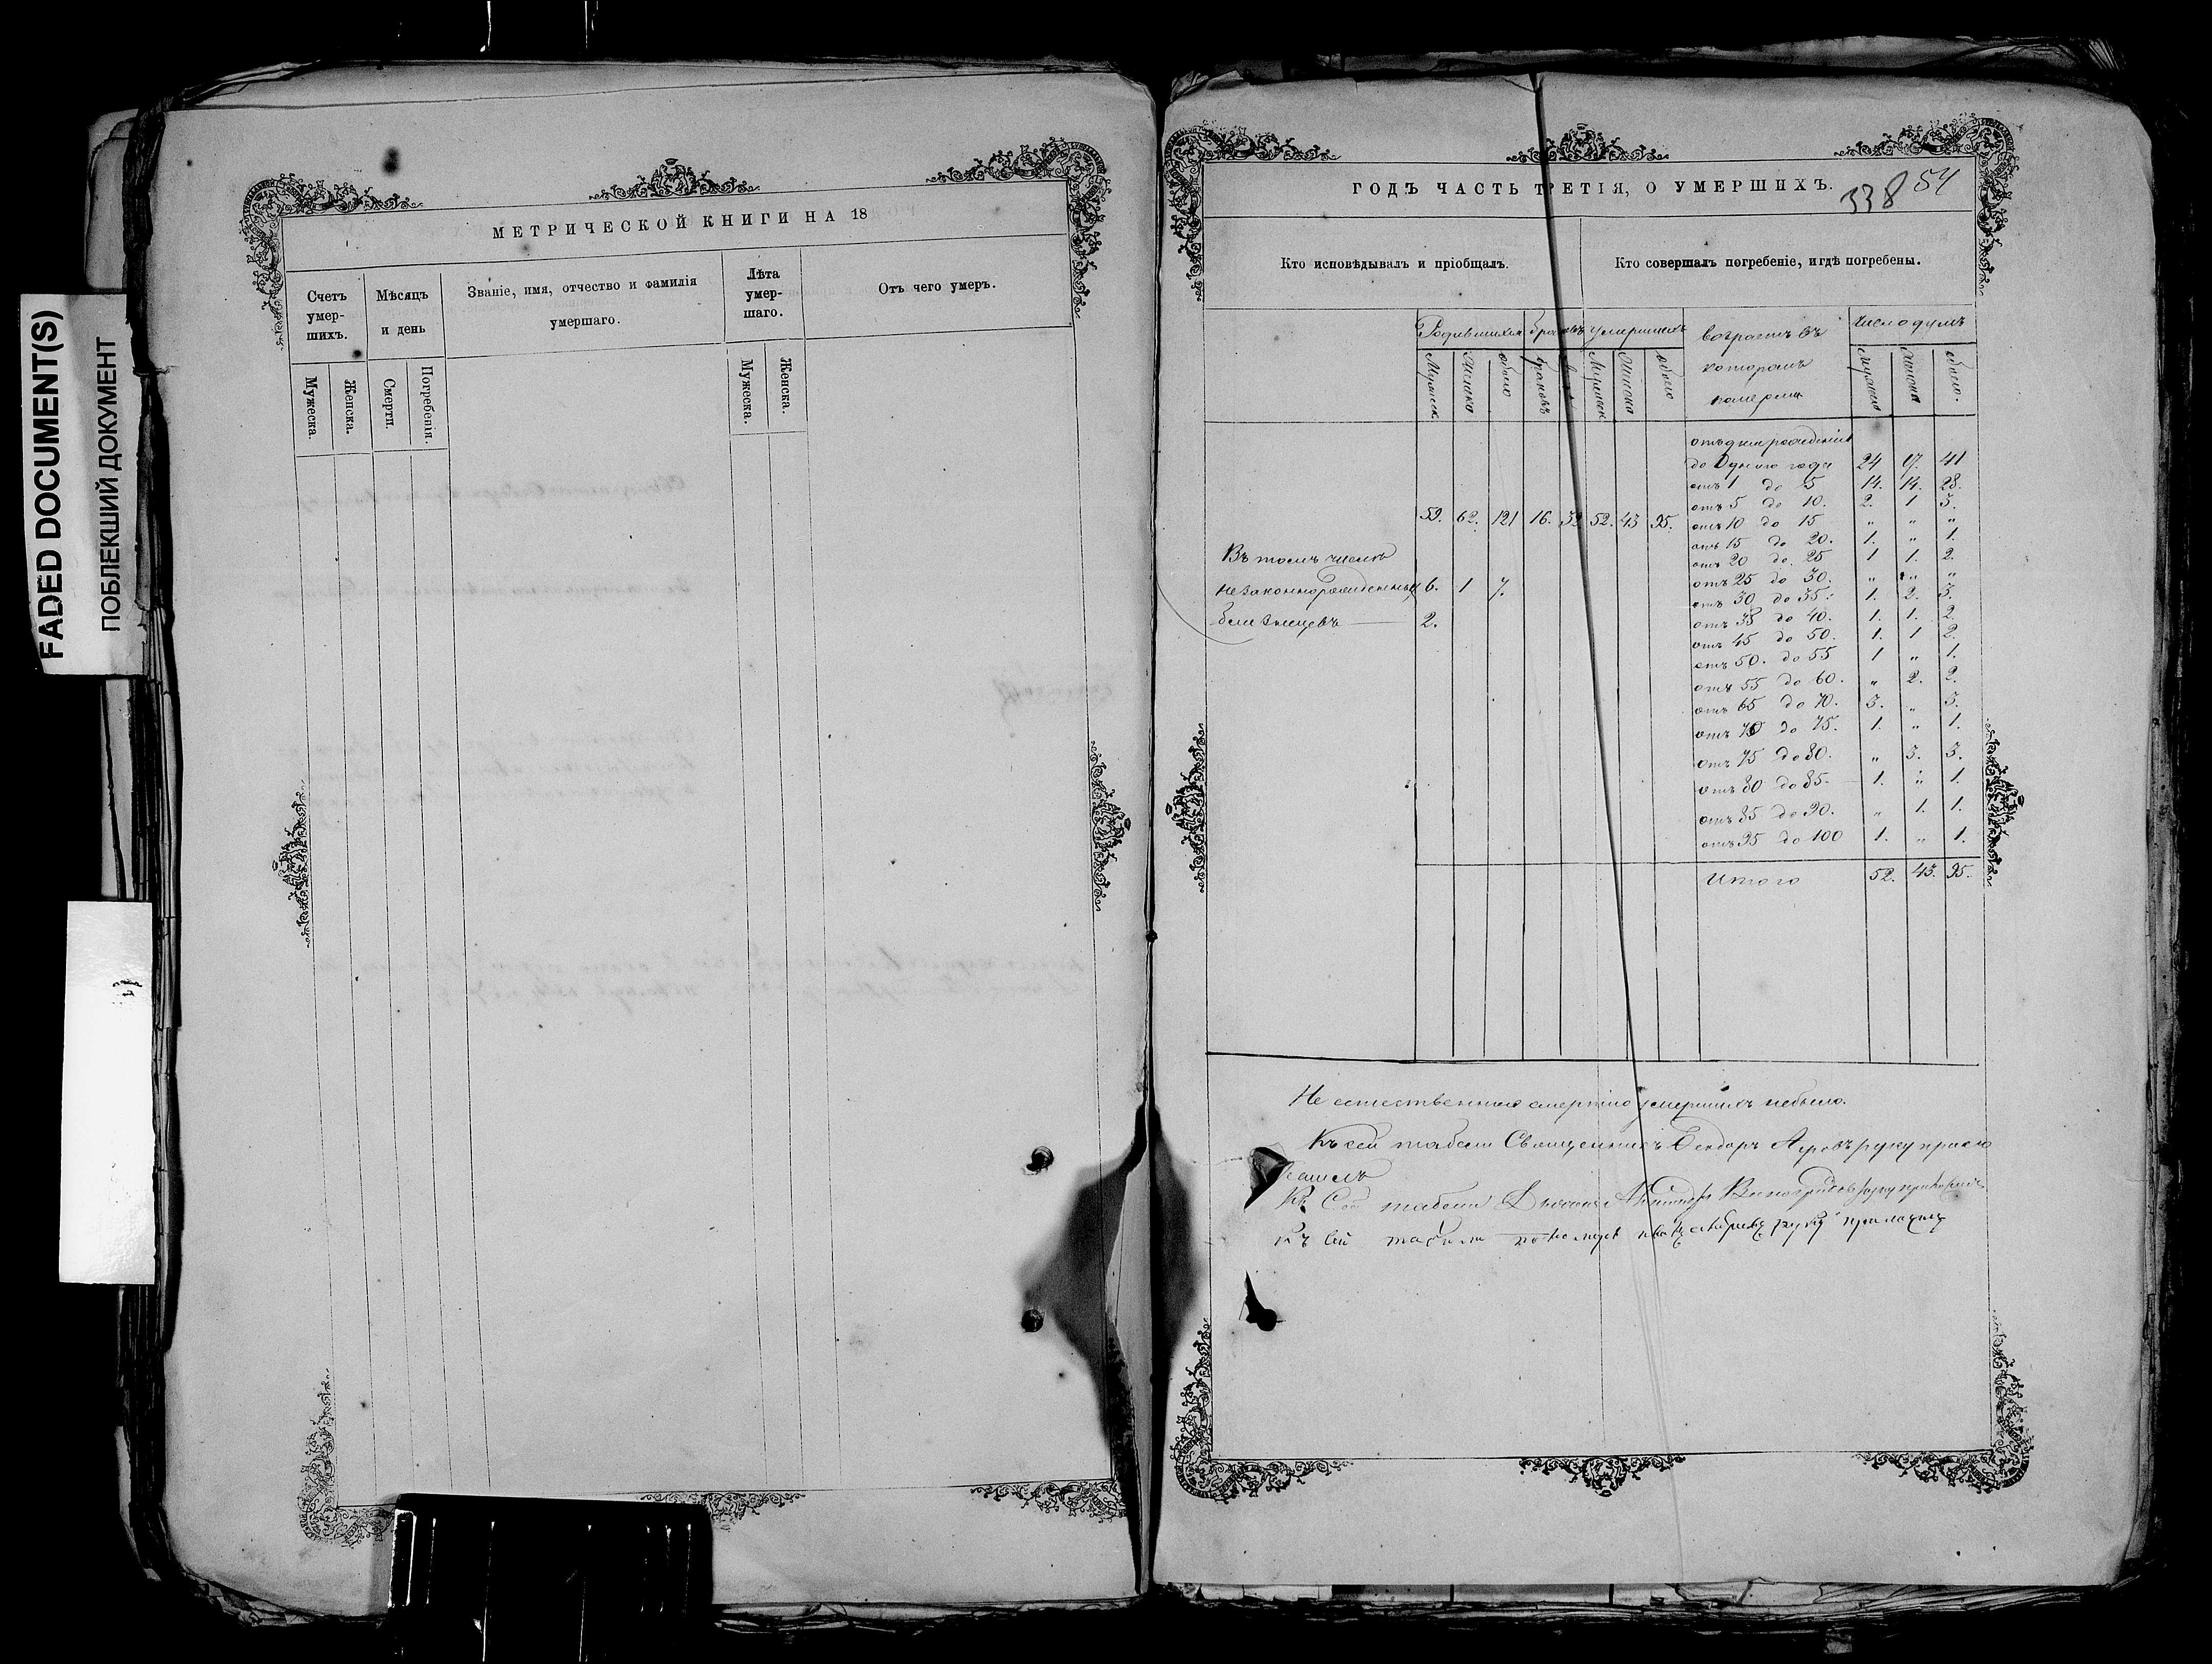 FADED DOCUMENT(S)
ПОБЛЕКШИЙ ДОКУМЕНТ
МЕТРИЧЕСКОЙ КНИГИ НА 18
Счетъ умер-шихъ.
Мѣсяцъ и день
Званіе, имя, отчество и фамилія умершаго.
Лѣта умер-шаго.
Отъ чего умеръ.
Мужеска. Женска. Смерти. Погребенія. Мужеска. Женска.
ГОДЪ ЧАСТЬ ТРЕТІЯ, О УМЕРШИХЪ.
338 54
Кто исповѣдывалъ и пріобщалъ.
Кто совершалъ погребеніе, и гдѣ погребены.
Родившихся браковъ умершихъ возрастъ въ которомъ померли число душъ
Мужеск Женска обоего браковъ Мужеск Женска обоего мужеска женска обоего.
отъ дня рожденія
до Одного года 24 17. 41
отъ 1 до 5 14. 14. 28.
отъ 5 до 10. 2. 1 3.
59. 62. 121 16. 32 52. 43 95. отъ 10 до 15 " " "
отъ 15 до 20. 1. " 1.
Въ томъ числѣ отъ 20 до 25 1 1. 2.
незаконнорожденныхъ 6. 1 7. отъ 25 до 30. " " "
отъ 30 до 35. 1. 2. 3.
близнецовъ 2. отъ 35 до 40. 1. 1. 2.
отъ 45 до 50. 1. 1 2.
отъ 50. до 55 1 " 1.
отъ 55 до 60. " 2. 2.
отъ 65 до 70. 3. " 3.
отъ 70 до 75. 1. " 1.
отъ 75 до 80. " 3. 3.
отъ 80 до 85. 1. " 1.
отъ 85 до 90. " 1. 1.
отъ 95 до 100 1. " 1.
Итого 52. 43. 95.
Не естественною смертію умершихъ небыло.
Къ сей табели Священникъ Ѳеодоръ руку прило
жилъ
Къ Сей табели Виноградовъ руку приложилъ
Къ сей табели руку приложилъ